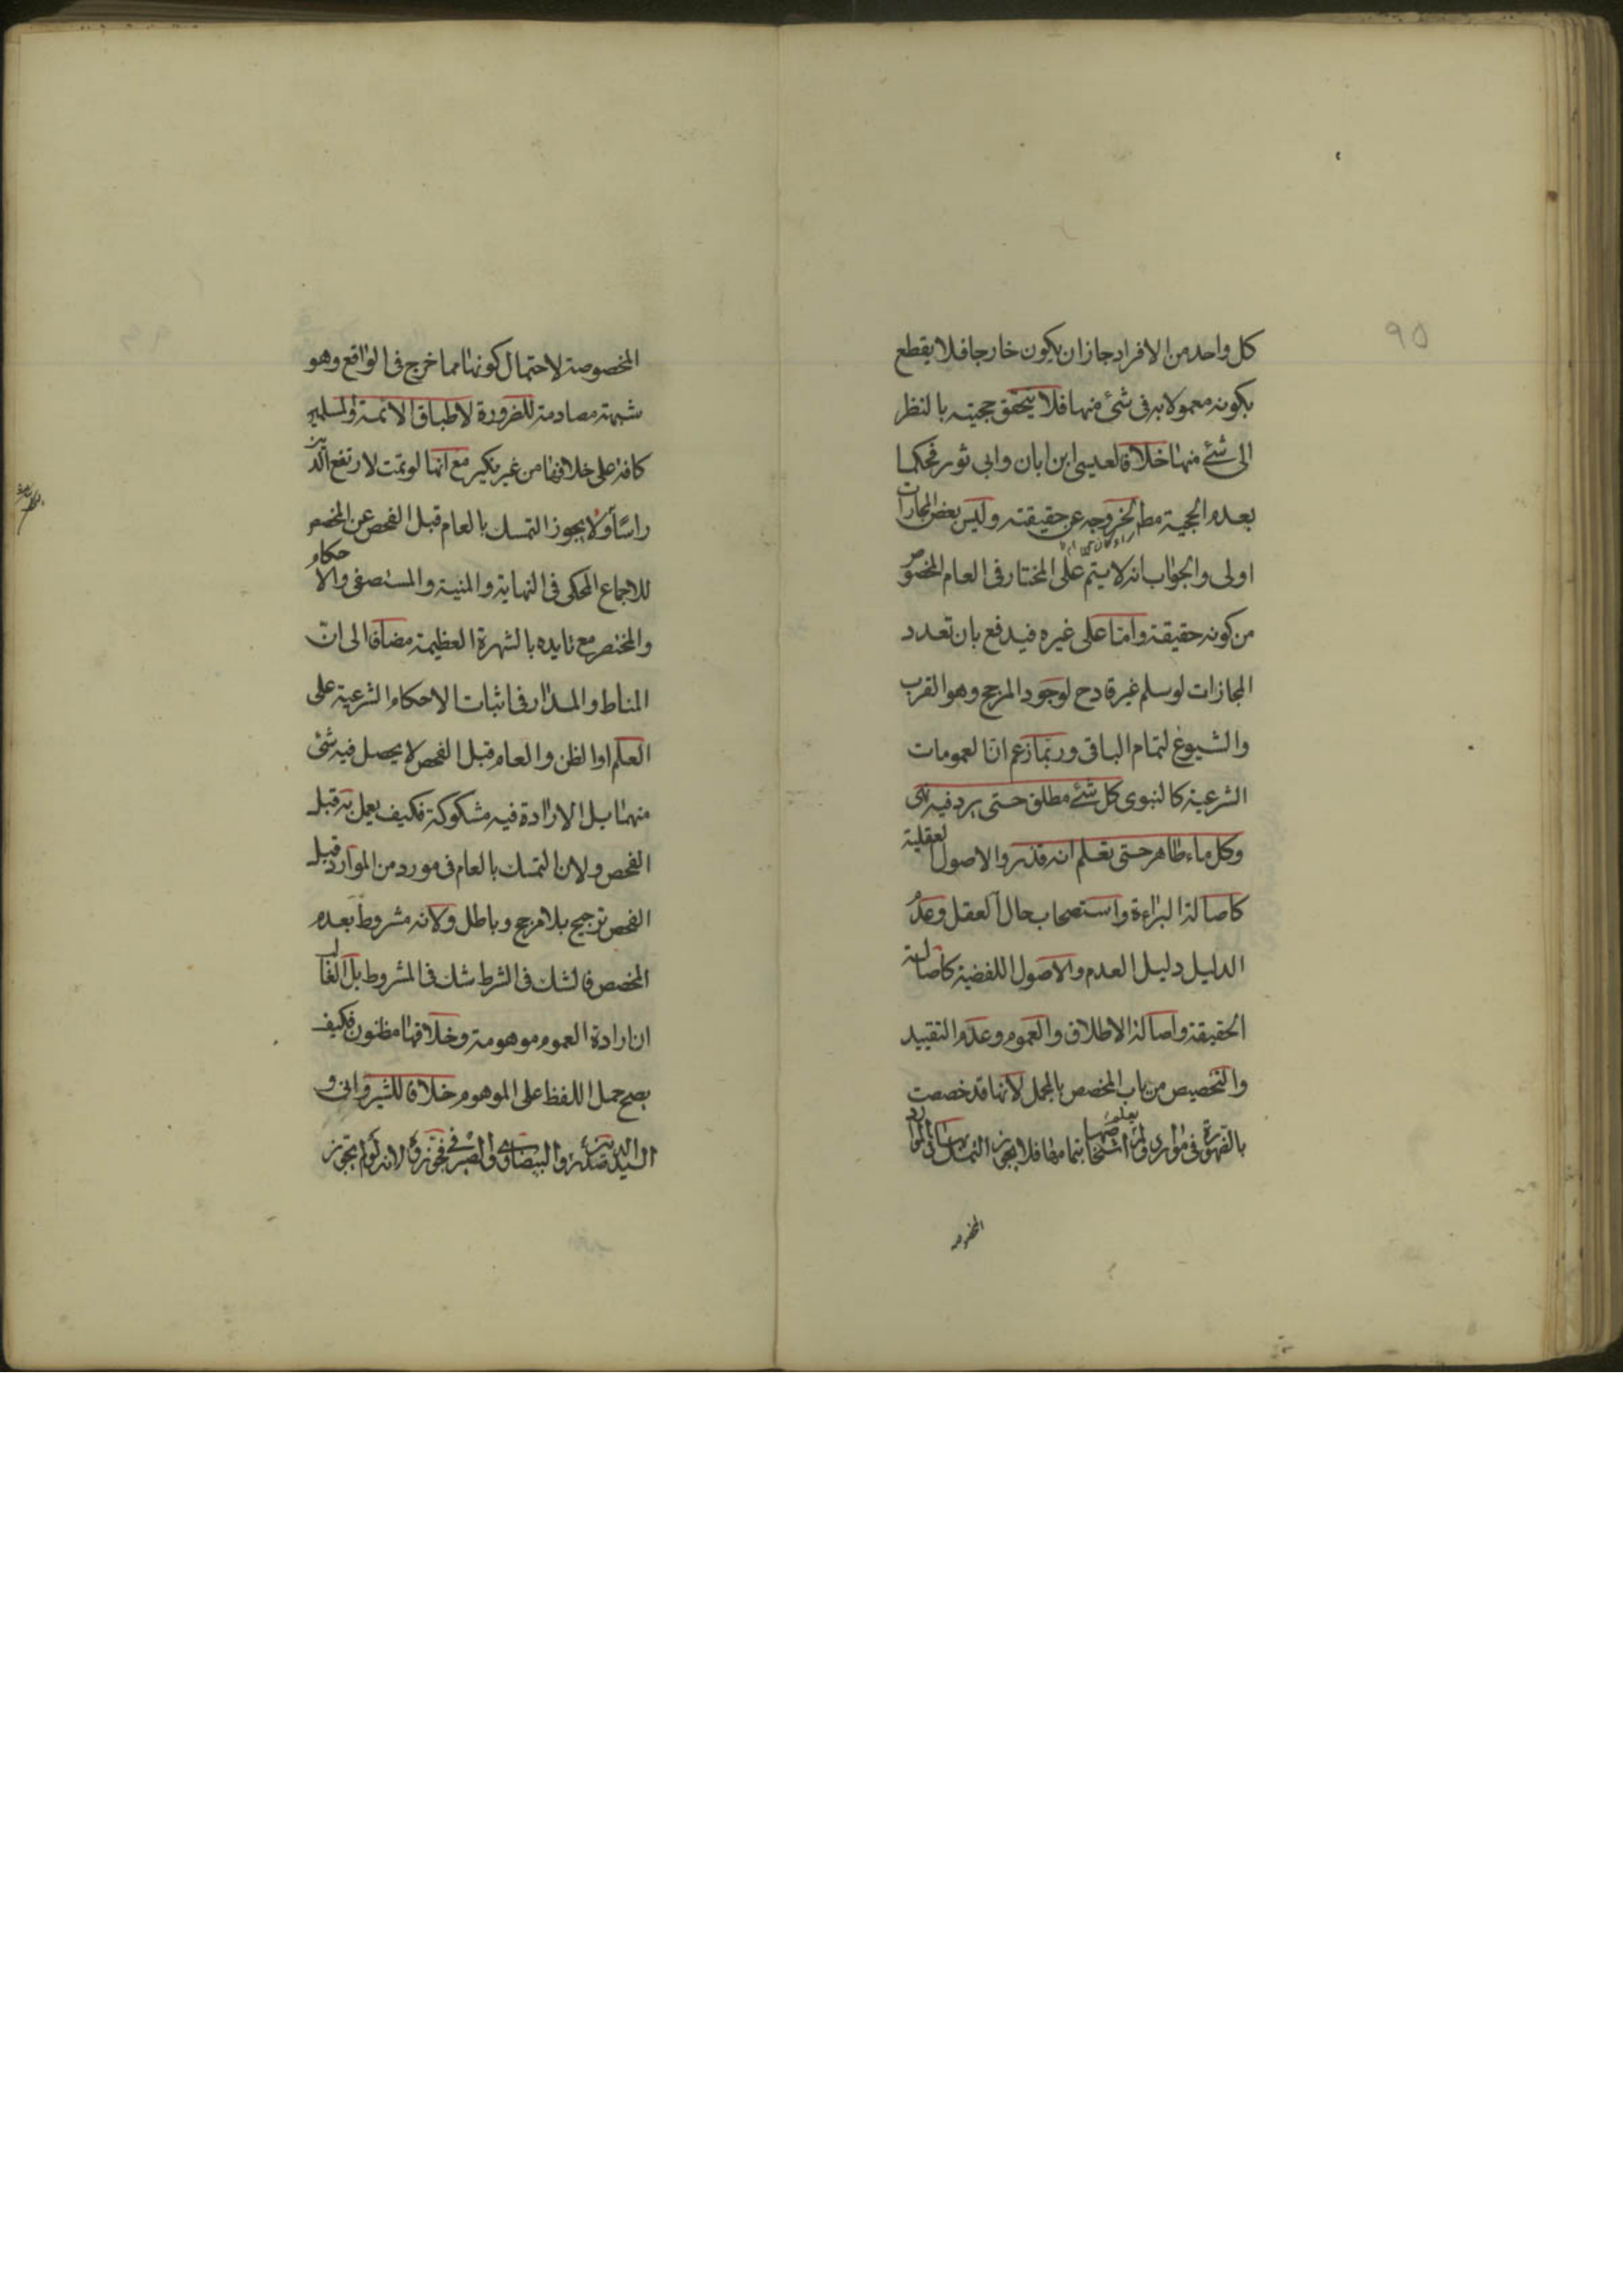 ٩٥
كل واحد من الافراد جاز ان يكون خارجا فلا يقطع
بكونه معمولا به فى شئ منها فلا يتحقق حجيته بالنظر
الى شئ منها خلافا لعيسى ابن ابان وابى ثور فحكما
بعدم الحجية مطلقا لخروجه عن حقيقته وليس بعض المجازات
اولى والجواب انه لا يتم على المختار فى العام المخصوص
من كونه حقيقة واما على غيره فيدفع بان تعدد
المجازات لو سلم غير قادح لوجود المرجح وهو القرب
والشيوع لتمام الباقى وربما زعم ان العمومات
الشرعية كالنبوى كل شئ مطلق حتى يرد فيه نهى
وكل ماء طاهر حتى تعلم انه قذر والاصول العقلية
كاصالة البراءة واستصحاب حال العقل وعدم
الدليل دليل العدم والاصول اللفظية كاصالة
الحقيقة واصالة الاطلاق والعموم وعدم التقييد
والتخصيص من باب المخصص بالمجمل لانها قد خصصت
بالقهرية فى موارد ولم يعلم اشخاصها بتمامها فلا يجوز التمسك بها فى الموارد
المخصوصة
المخصوصة لاحتمال كونها مما خرج فى الواقع وهو
شبهة مصادمة للضرورة لاطباق الائمة والمسلمين
كافة على خلافها من غير نكير مع انها لو تمت لارتفع الدين
راسًا ولا يجوز التمسك بالعام قبل الفحص عن المخصص
للاجماع المحكى فى النهاية والمنية والمستصفى والاحكام
والمختصر مع تايده بالشهرة العظيمة مضافا الى ان
المناط والمدار فى اثبات الاحكام الشرعية على
العلم او الظن والعام قبل الفحص لا يحصل فيه شئ
منهما بل الارادة فيه مشكوكة فكيف يعمل به قبل
الفحص ولان التمسك بالعام فى مورد من الموارد قبل
الفحص ترجيح بلا مرجح وباطل ولانه مشروط بعدم
المخصص فالشك فى الشرط شك فى المشروط بل الغالب
ان ارادة العموم موهومة وخلافها مظنون فكيف
يصح حمل اللفظ على الموهوم خلافا للشيروانى و
السيد صدر الدين والبيضاوى والصيرفى فجوزوه لانه لو لم يجوز